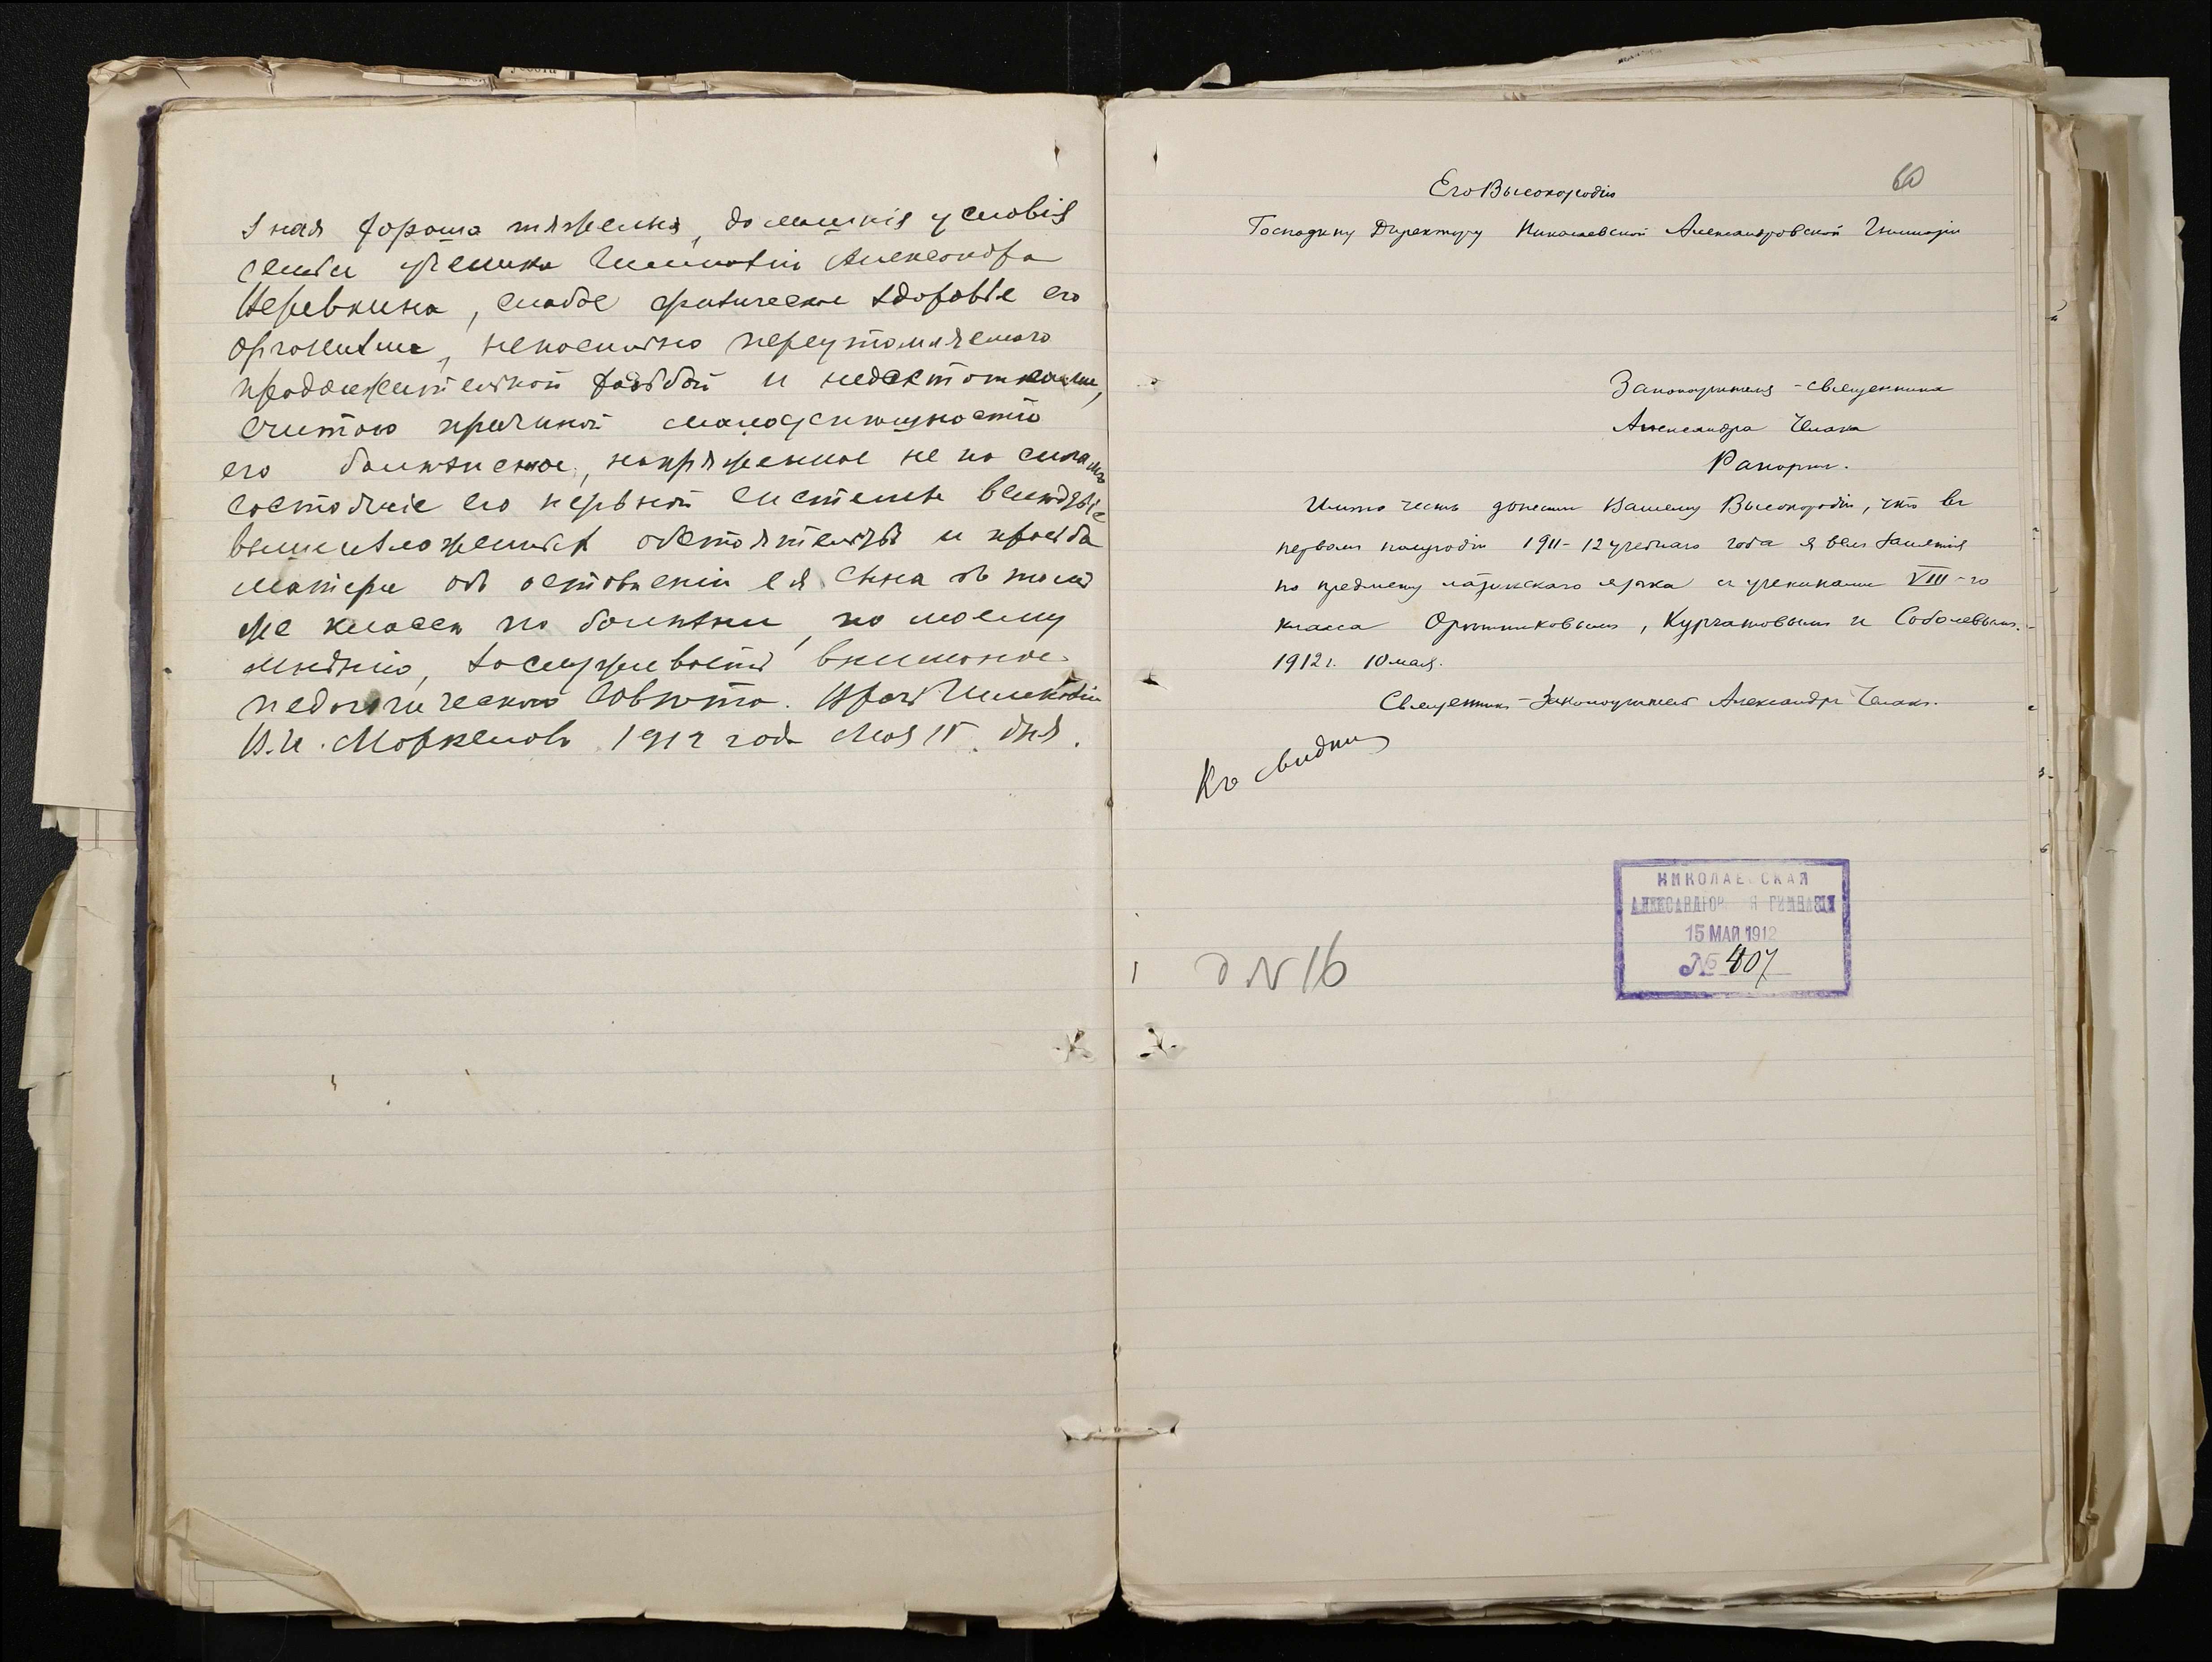 Зная хорошо тяжелыя, домашнія условія
семьи ученика Гимназіи Александра
Неревкина, слабое физическое здоровье его
организма, непосильно переутомляемого
продолжительной ходьбой и недостатками,
считаю причиной малоуспешности
его болѣзненное, напряженное не по силамъ
состояніе его нервной системы. Ввиду
вышеизложенныхъ обстоятельствъ и просьба
матери объ оставленіи ея сына въ томъ
же классѣ по болѣзни, по моему
мнѣнію, заслуживаетъ вниманія
педагогическаго Совѣта. Врачъ Гимназіи
В. И. Моркелов 1912 года Мая 15 дня.
60
Его Высокородію
Господину Директору Николаевской Александровской Гимназіи
Законоучителя - священника
Александра
Рапортъ.
Имѣю честь донести Вашему Высокородію, что въ
первомъ полугодіи 1911-12 учебнаго года я велъ занятія
по предмету латинскаго языка съ учениками VIII-го
класса , Курчатовымъ и Соболевымъ.
1912 г. 10 мая.
Священникъ - Законоучитель Александръ
Къ свѣдѣнію
НИКОЛАЕ СКАЯ
АЛЕКСАНДРОВ Я ГИМНАЗІЯ
15 МАЯ 1912
№ 407
д N 16